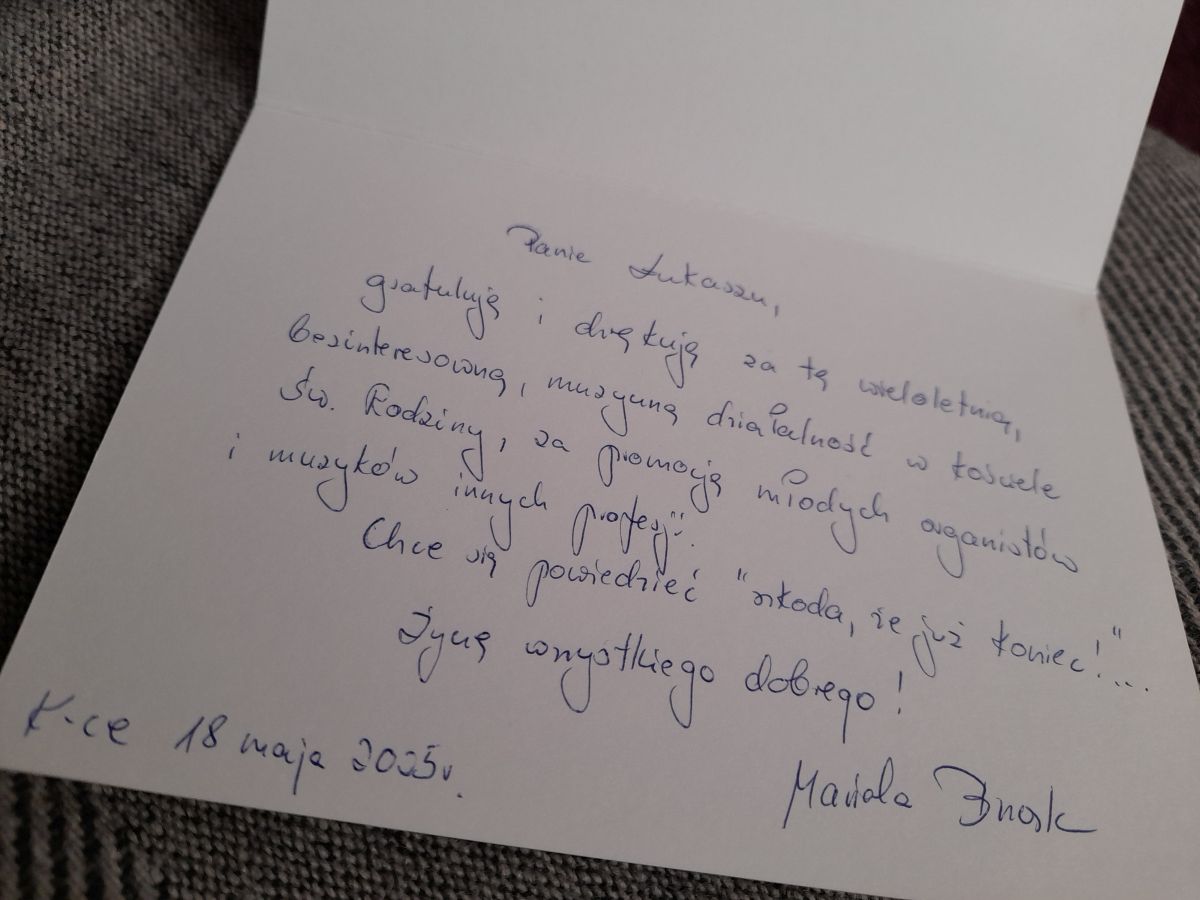 Panie Łukaszu,
gratuluję i dziękuję za tę wieloletnią,
bezinteresowną, muzyczną działalność w kościele
Św. Rodziny, za promocję młodych organistów
i muzyków innych profesji.
Chce się powiedzieć "szkoda, że już koniec!"...
Życzę wszystkiego dobrego!
K-ce 18 maja 2025r.
Mariola